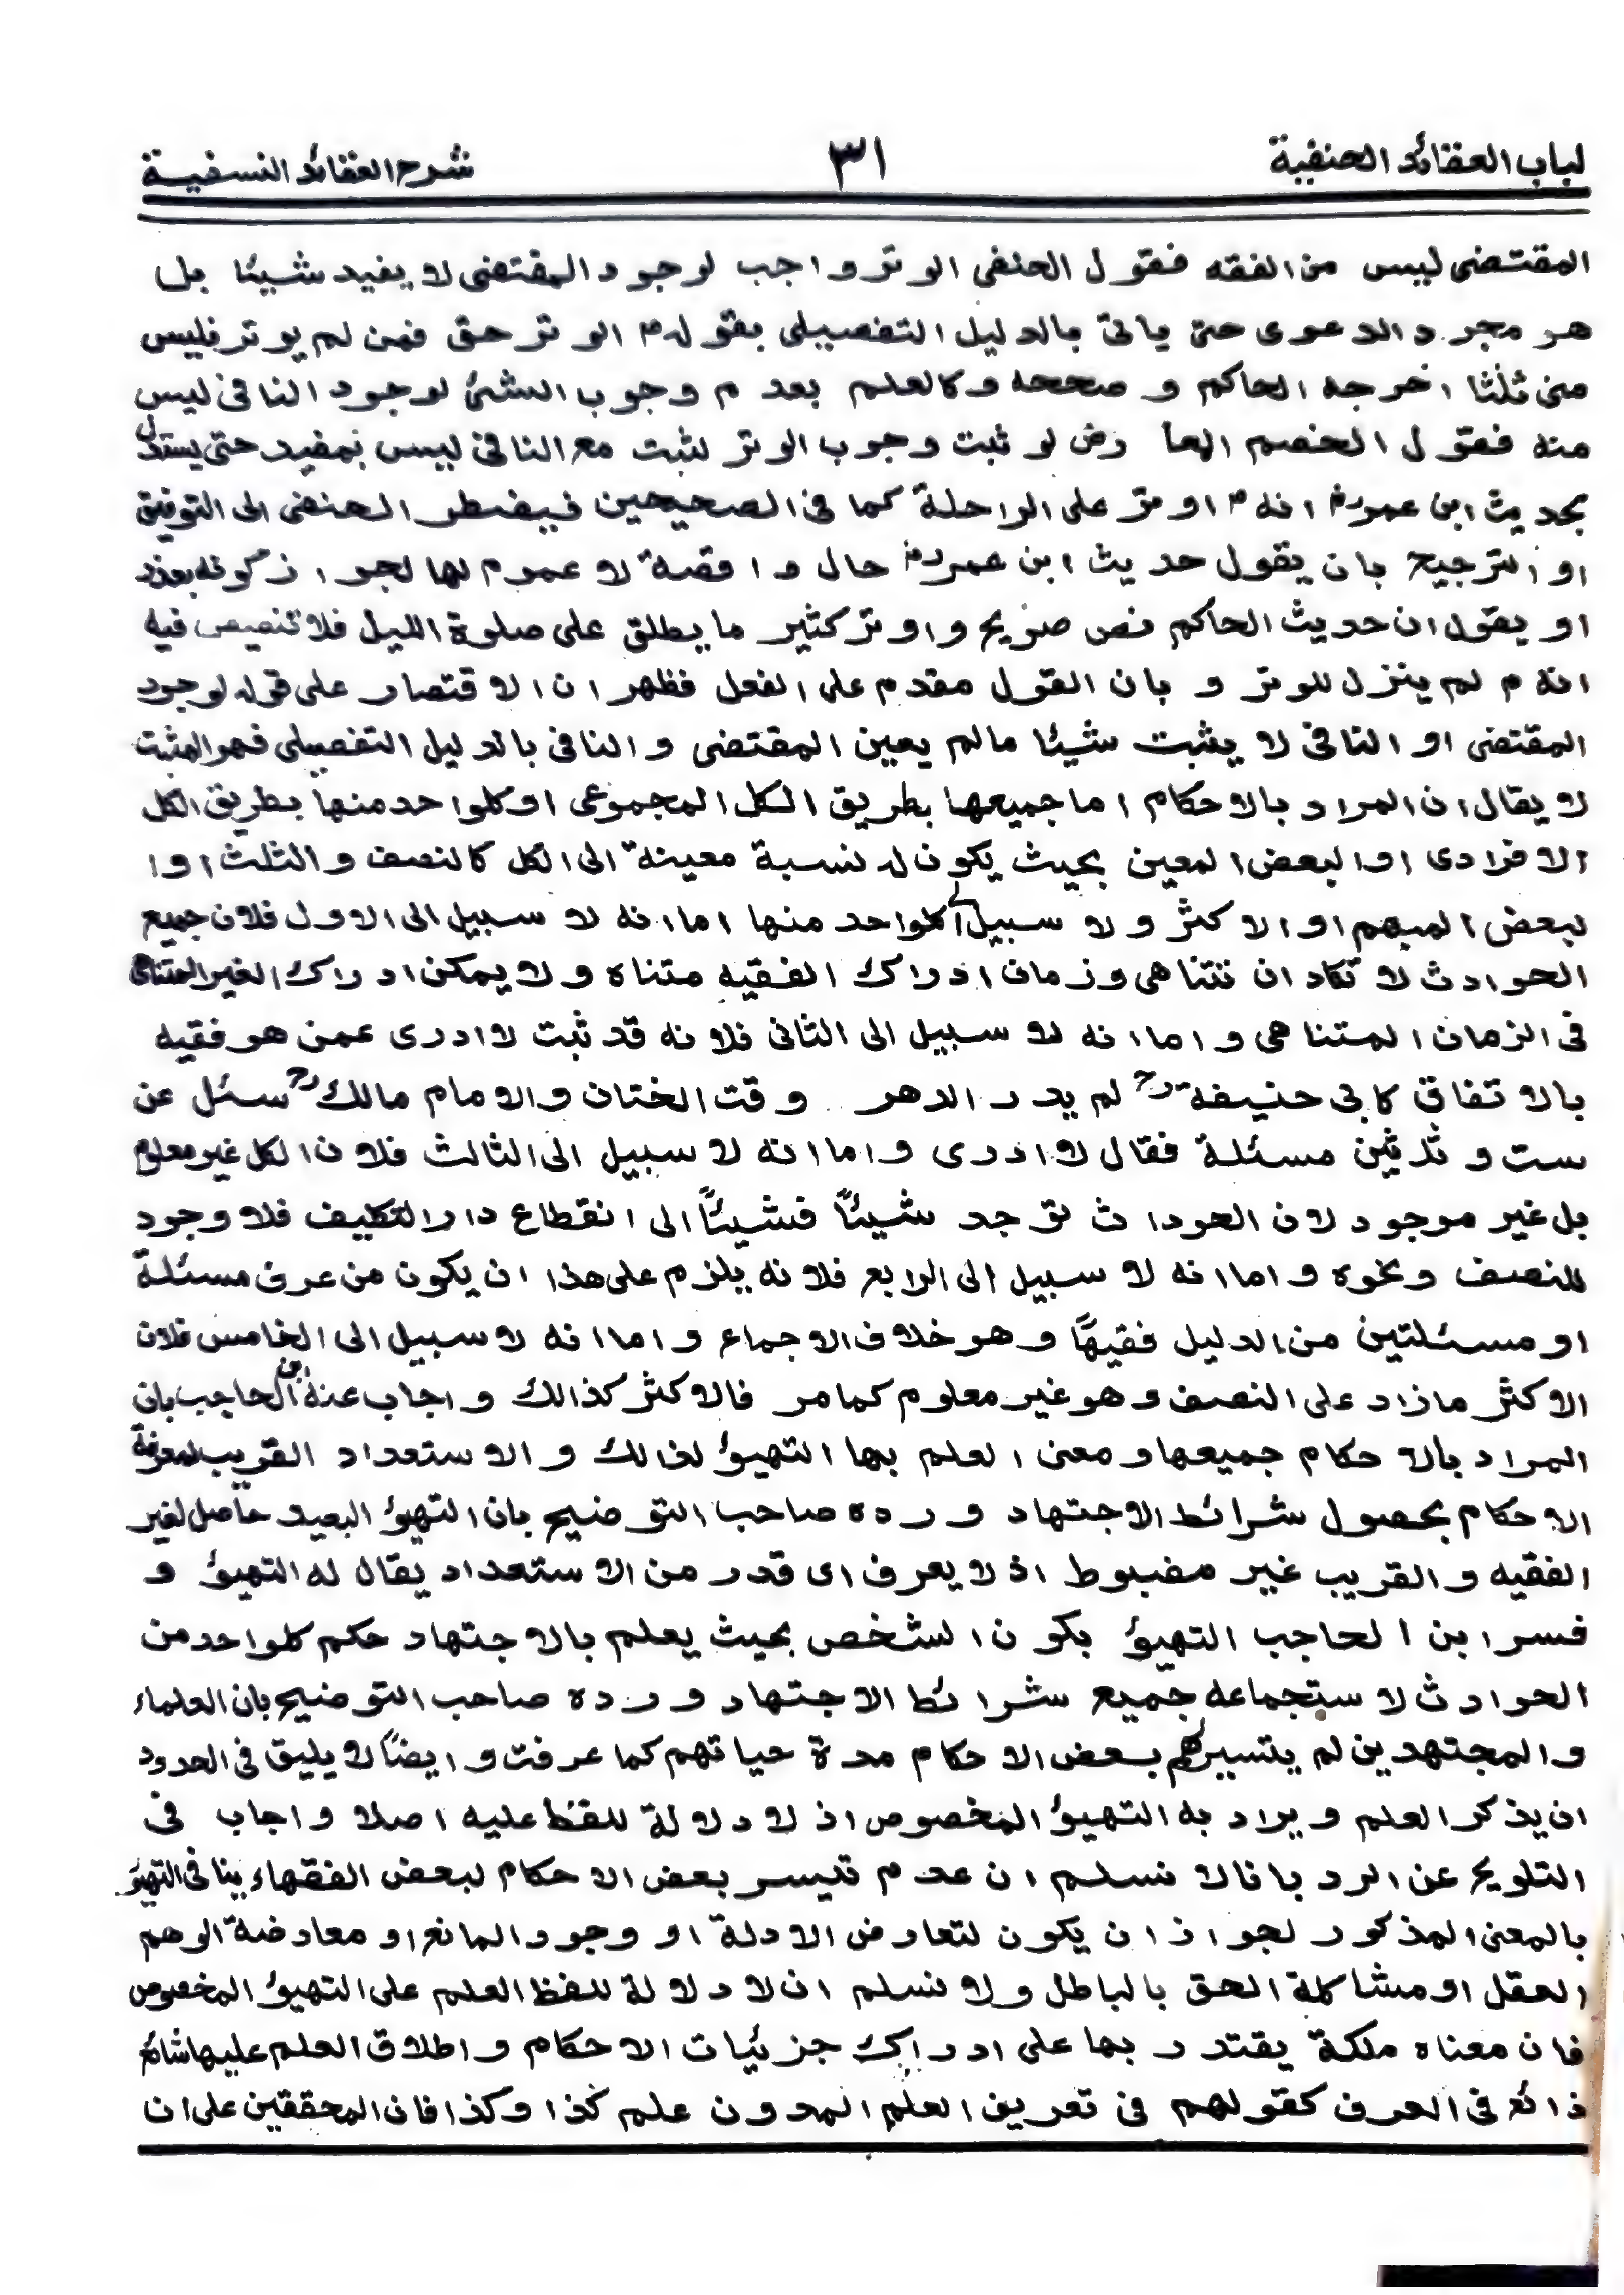 لباب العقائد الحنفية ٣١ شرح العقائد النسفية
المقتضى ليس من الفقه فقول الحنفى الوتر واجب لوجود المقتضى لا يفيد شيئا بل
هو مجرد الدعوى حتى ياتى بالدليل التفصيلى بقوله م الوتر حق فمن لم يوتر فليس
منى ثلثا اخرجه الحاكم و صححه وكالعلم بعدم وجوب الشئ لوجود النافى ليس
منه فقول الخصم المعارض لو ثبت وجوب الوتر لثبت مع النافى ليس بمفيد حتى يستدل
بحديث ابن عمر رض انه م اوتر على الراحلة كما فى الصحيحين فيضطر الحنفى الى التوفيق
او الترجيح بان يقول حديث ابن عمر رض حال واقصة لا عموم لها لجواز كونه بعذر
او يقول ان حديث الحاكم نص صريح واوتر كثير ما يطلق على صلوة الليل فلا تنصيص فيه
انه م لم ينزل للوتر و بان القول مقدم على الفعل فظهر ان الاقتصار على قوله لوجود
المقتضى او النافى لا يثبت شيئا مالم يعين المقتضى و النافى بالدليل التفصيلى فهو المثبت
لا يقال ان المراد بالاحكام اما جميعها بطريق الكل المجموعى او كلواحد منها بطريق الكل
الافرادى او البعض المعين بحيث يكون له نسبة معينة الى الكل كالنصف والثلث او ا
لبعض المبهم او الاكثر و لا سبيل الى كلواحد منها اما انه لا سبيل الى الاول فلان جميع
الحوادث لا تكاد ان تتناهى وزمان ادراك الفقيه متناه و لا يمكن ادراك الغير المتناهى
فى الزمان المتناهى و اما انه لا سبيل الى الثانى فلانه قد ثبت لا ادرى عمن هو فقيه
بالاتفاق كابى حنيفة رح لم يدر الدهر وقت الختان والامام مالك رح سئل عن
ست و ثلثين مسئلة فقال لا ادرى واما انه لا سبيل الى الثالث فلان الكل غير معلوم
بل غير موجود لان الحوداث توجد شيئًا فشيئًا الى انقطاع دار التكليف فلا وجود
للنصف ونحوه واما انه لا سبيل الى الرابع فلانه يلزم على هذا ان يكون من عرف مسئلة
او مسئلتين من الدليل فقيهًا وهو خلاف الاجماع واما انه لا سبيل الى الخامس فلان
الاكثر مازاد على النصف وهو غير معلوم كما مر فالاكثر كذالك واجاب عنه ابن الحاجب بان
المراد بالاحكام جميعها ومعنى العلم بها التهيؤ لذالك والاستعداد القريب لمعرفة
الاحكام بحصول شرائط الاجتهاد ورده صاحب التوضيح بان التهيؤ البعيد حاصل لغير
الفقيه والقريب غير مضبوط اذ لا يعرف اى قدر من الاستعداد يقال له التهيؤ و
فسر ابن الحاجب التهيؤ بكون الشخص بحيث يعلم بالاجتهاد حكم كلواحد من
الحوادث لاستجماعه جميع شرائط الاجتهاد ورده صاحب التوضيح بان العلماء
والمجتهدين لم يتسير لهم بعض الاحكام مدة حياتهم كما عرفت وايضًا لا يليق فى الحدود
ان يذكر العلم ويراد به التهيؤ المخصوص اذ لا دلالة للفظ عليه اصلا واجاب فى
التلويح عن الرد بانا لا نسلم ان عدم تيسر بعض الاحكام لبعض الفقهاء ينافى التهيؤ
بالمعنى المذكور لجواز ان يكون لتعارض الادلة او وجود المانع او معارضة الوهم
العقل او مشاكلة الحق بالباطل ولا نسلم ان لا دلالة للفظ العلم على التهيؤ المخصوص
فان معناه ملكة يقتدر بها على ادراك جزئيات الاحكام واطلاق العلم عليها شائع
ذائع فى العرف كقولهم فى تعريف العلم المدون علم كذا وكذا فان المحققين على ان